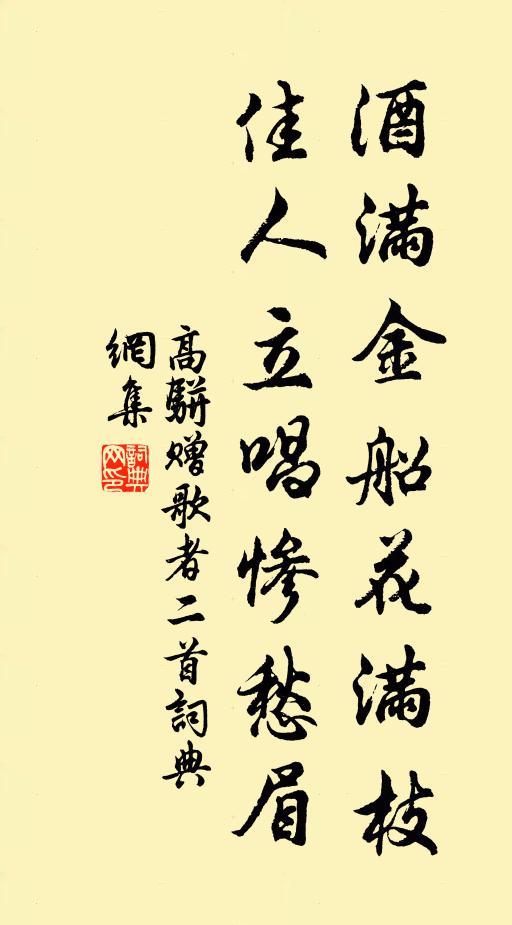 酒满金船花满枝
佳人立唱惨愁眉
高駢赠歌者二首詞典
網集
詞典
网印